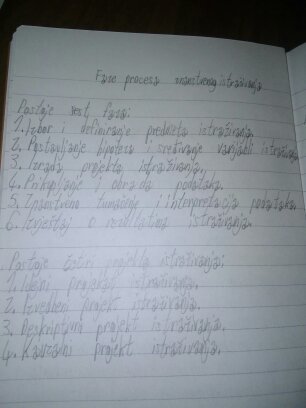 Faze procesa znanstvenog istraživanja
Postoje šest faza:
1. Izbor i definiranje predmeta istraživanja.
2. Postavljanje hipoteza i sređivanje varijabli istraživanja
3. Izrada projekta istraživanja.
4. Prikupljanje i obrada podataka.
5. Znanstveno tumačenje i interpretacija podataka.
6. Izvještaj o rezultatima istraživanja.
Postoje četiri projekta istraživanja:
1. Idejni projekat istraživanja.
2. Izvedbeni projekt istraživanja.
3. Deskriptivni projekt istraživanja.
4. Kauzalni projekt istraživanja.